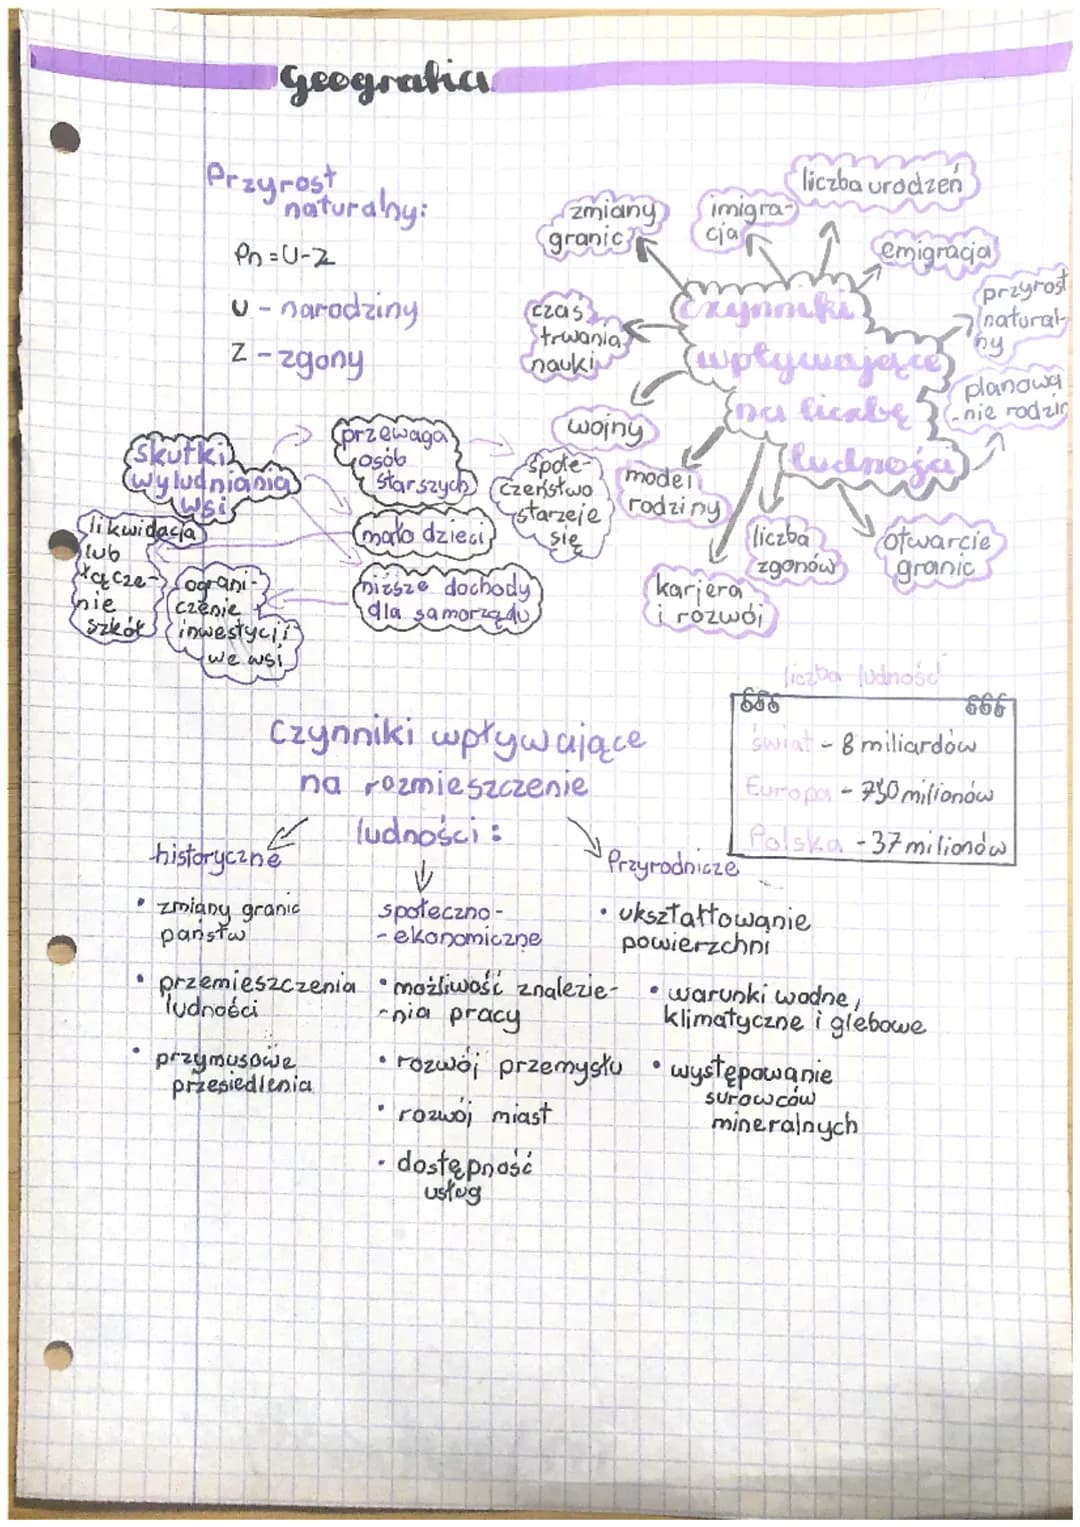 Geografia
Przyrost
naturalny:
Pn = U-Z
U - narodziny
Z - zgony
Czynniki
wpływające
na liczbę
ludności
zmiany
granic
imigra-
cja
liczba urodzeń
emigracja
przyrost
natural-
ny
planowa
-nie rodzin
otwarcie
granic
liczba
zgonów
karjera
i rozwój
model
rodziny
wojny
czas
trwania
nauki
skutki
wyludniania
wsi
przewaga
osób
starszych
społe-
czeństwo
starzeje
się
mało dzieci
niższe dochody
dla samorządu
likwidacja
lub
łącze-
nie
szkół
ograni-
czenie
inwestycji
we wsi
liczba ludność
świat - 8 miliardów
Europa - 750 milionów
Polska - 37 milionów
Czynniki wpływające
na rozmieszczenie
ludności:
historyczne
• zmiany granic
państw
• przemieszczenia
ludności
• przymusowe
przesiedlenia
społeczno-
-ekonomiczne
• możliwość znalezie-
-nia pracy
• rozwój przemysłu
• rozwój miast
• dostępność
usług
Przyrodnicze
• ukształtowanie
powierzchni
• warunki wodne,
klimatyczne i glebowe
• występowanie
surowców
mineralnych